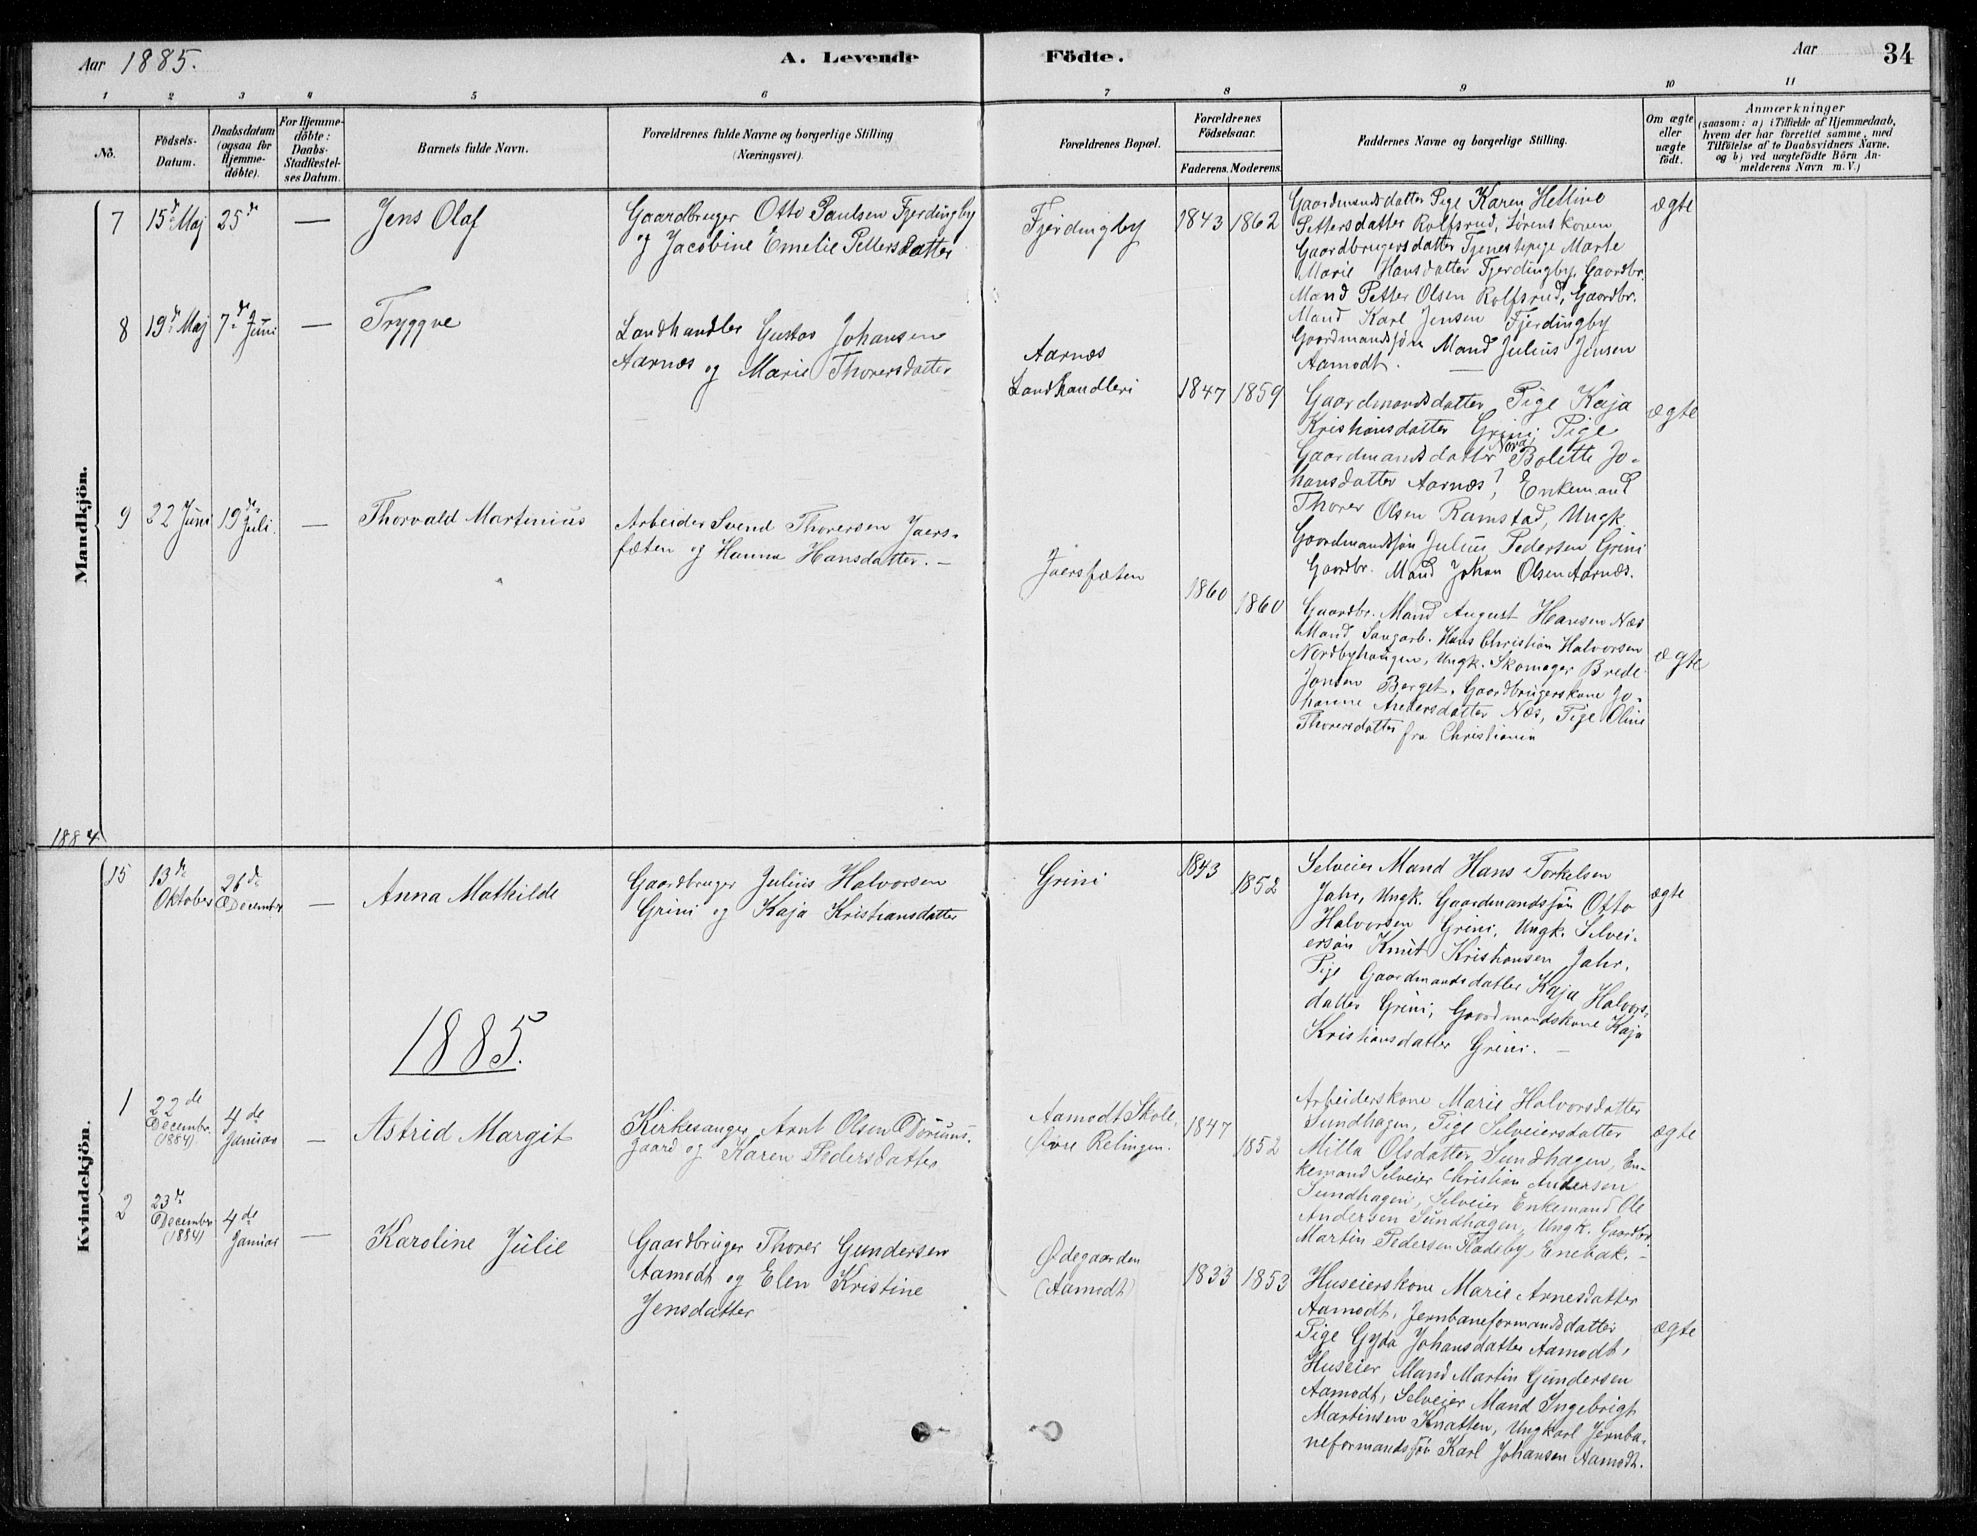 Aar 1885.
A. Levende
Födte.
Aar
34
1 2 3 4 5 6 7 8 9 10 11
No.
Födsels-
Datum.
Daabsdatum
(ogsaa for
Hjemme-
döbte).
For Hjemme-
döbte:
Daabs-
Stadfæstel-
ses Datum.
Barnets fulde Navn.
Forældrenes fulde Navne og borgerlige Stilling
(Næringsvei).
Forældrenes Bopæl.
Forældrenes
Födselsaar.
Faderens. Moderens.
Faddernes Navne og borgerlige Stilling.
Om ægte
eller
uægte
födt.
Anmærkninger
(saasom: a) i Tilfælde af Hjemmedaab,
hvem der har forrettet samme, med
Tilföielse af to Daabsvidners Navne,
og b) ved uægtefödte Börn An-
melderens Navn m. V.)
Mandkjön.
7
15de Maj
25de
—
Jens Olaf
Gaardbruger Otto Paulsen Fjerdingby
og Jacobine Emelie Pettersdatter
Fjerdingby
1843
1862
Gaardmandsdatter Pige Karen Helline
Pettersdatter Rolfsrud, Lørenskoven
Gaardbrugersdatter Tjenestepige Marte
Marie Hansdatter Fjerdingby, Gaardbr.
Mand Petter Olsen Rolfsrud, Gaardbr.
Mand Karl Jensen Fjerdingby
Gaardmandssøn Mand Julius Jensen
Aamodt.
ægte
8
19de Maj
7de Juni
—
Tryggve
Landhandler Gustav Johansen
Aarnæs og Marie Thorersdatter
Aarnæs
Landhandleri
1847
1859
Gaardmandsdatter Pige Kaja
Kristiansdatter Grini, Pige
Gaardmandsdatter Nora Bolette Jo-
hansdatter Aarnæs, Enkemand
Thorer Olsen Ramstad, Ungk.
Gaardmandssøn Julius Pedersen Grini
Gaardbr. Mand Johan Olsen Aarnæs.
ægte
9
22 Juni
19de Juli.
—
Thorvald Martinius
Arbeider Svend Thorersen Jaers-
fæten og Hanna Hansdatter. —
Jaersfæten
1860
1860
Gaardbr. Mand August Hansen Næs
Mand, Saugarb. Hans Christian Halvorsen
Nordbyhaugen, Ungk. Skomager Brede
Jonsen Berget, Gaardbrugerskone Jo-
hanne Andersdatter Næs, Pige Oline
Thorersdatter fra Christiania
ægte
1884.
Kvindekjön.
15
13de
Oktober
26de
December
—
Anna Mathilde
Gaardbruger Julius Halvorsen
Grini og Kaja Kristiansdatter
Grini
1843
1852
Selveier Mand Hans Torkelsen
Jahr, Ungk. Gaardmandssøn Otto
Halvorsen Grini, Ungk. Selvei-
ersøn Knut Kristiansen Jahr,
Pige Gaardmandsdatter Kaja Halvors-
datter Grini, Gaardmandskone Kaja
Kristiansdatter Grini. —
ægte
1885.
1
22de
Decembr.
(1884)
4de
Januar
—
Astrid Margit
Kirkesanger Arnt Olsen Dorums-
gaard og Karen Pedersdatter
Aamodt Skole,
Øvre Relingen.
1847
1852
Arbeiderskone Marie Halvorsdatter
Sundhagen, Pige Selveiersdatter
Milla Olsdatter Sundhagen, En-
kemand Selveier Christian Andersen
Sundhagen, Selveier Enkemand Ole
Andersen Sundhagen, Ungk. Gaardbr.
Martin Pedersen Fladeby Enebak. —
ægte
2
23de
December
(1884)
4de
Januar
—
Karoline Julie
Gaardbruger Thorer Gundersen
Aamodt og Elen Kristine
Jensdatter
Ødegaarden
(Aamodt)
1833
1853
Huseierskone Marie Arnesdatter
Aamodt, Jernbaneformandsdatter
Pige Gyda Johansdatter Aamodt,
Huseier Mand Martin Gundersen
Aamodt, Selveier Mand Ingebrigt
Martinsen Knatten, Ungkarl Jernba-
neformandssøn Karl Johansen Aamodt.
ægte